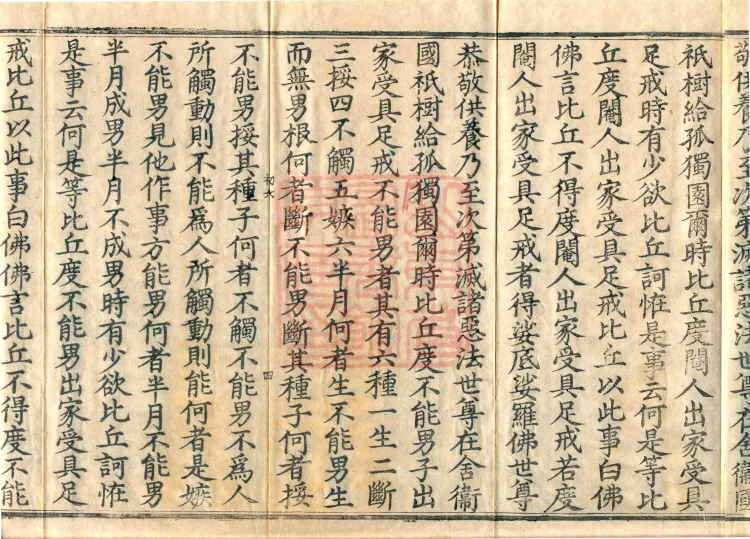 敬供養乃至次第滅諸惡法世尊在舍衞國
祇樹給孤獨園爾時比丘度閹人出家受具
足戒時有少欲比丘訶恠是事云何是等比
丘度閹人出家受具足戒比丘以此事白佛
佛言比丘不得度閹人出家受具足戒若度
閹人出家受具足戒者得娑底娑羅佛世尊
恭敬供養乃至次第滅諸惡法世尊在舍衞
國祇樹給孤獨園爾時比丘度不能男子出
家受具足戒不能男者其有六種一生二斷
三挼四不觸五嫉六半月何者生不能男生
而無男根何者斷不能男斷其種子何者挼
初大 四
不能男挼其種子何者不觸不能男不爲人
所觸動則不能爲人所觸動則能何者是嫉
不能男見他作事方能男何者半月不能男
半月成男半月不成男時有少欲比丘訶恠
是事云何是等比丘度不能男出家受具足
戒比丘以此事白佛佛言比丘不得度不能